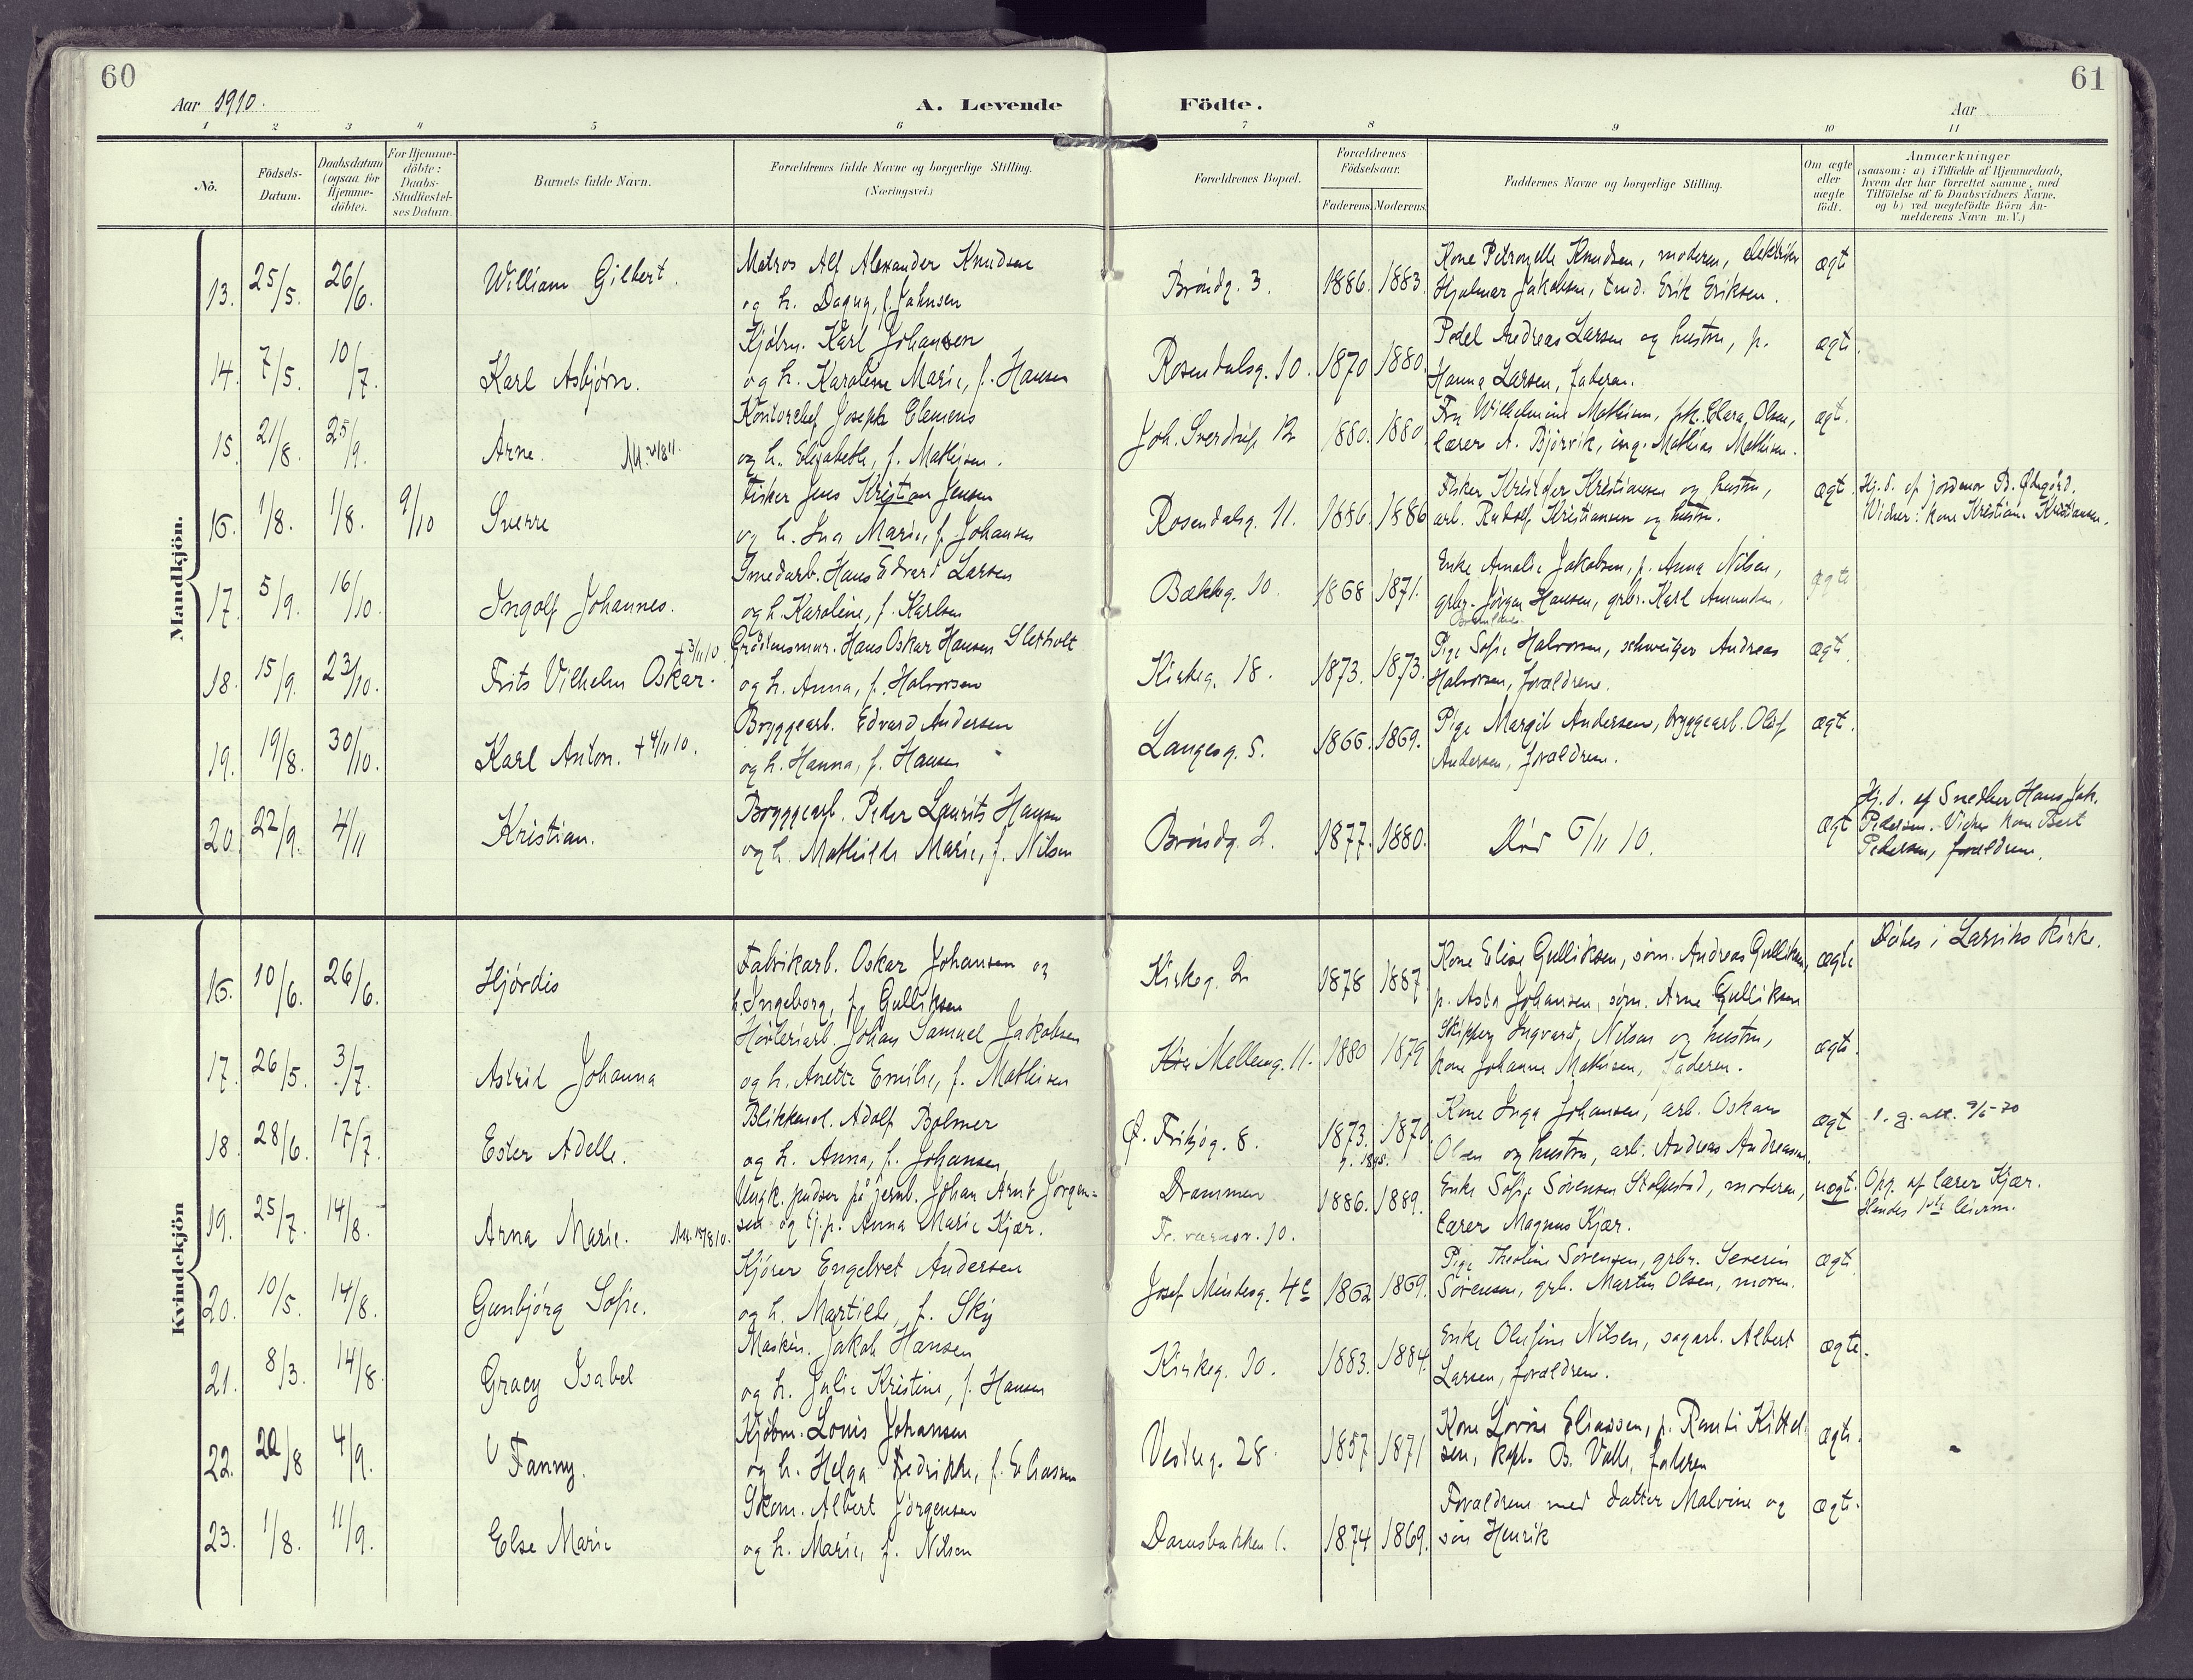 60
61
Aar 1910.
A. Levende Födte.
Aar
1 2 3 4 5 6 7 8 9 10 11
No.
Födsels-Datum.
Daabsdatum (ogsaa for Hjemmedöbte).
For Hjemmedöbte: Daabs-Stadfæstelses Datum.
Barnets fulde Navn.
Forældrenes fulde Navne og borgerlige Stilling. (Næringsvei.)
Forældrenes Bopæl.
Forældrenes Födselsaar.
Faderens. Moderens.
Faddernes Navne og borgerlige Stilling.
Om ægte eller uægte födt.
Anmærkninger
(saasom: a) i Tilfælde af Hjemmedaab, hvem der har forrettet samme, med Tilföielse af to Daabsvidners Navne, og b) ved uægtefödte Börn Anmelderens Navn m. V.)
Mandkjön.
13. 25/5. 26/6. William Gilbert. Matros Alf Alexander Knudsen
og h. Dagny, f. Jahnsen
Bröndg. 3. 1886. 1883. Kone Petronelle Knudsen, moderen, elektriker
Hjalmar Jakobsen, Erik Eriksen. ægte
14. 7/5. 10/7. Karl Asbjörn. Kjöbm. Karl Johansen
og h. Karoline Marie, f. Hansen
Rosendalsg. 10. 1870 1880. Pedel Andreas Larsen og hustru, p.
Hanna Larsen, faderen. ægte.
15. 21/8. 25/9. Arne. Kontorchef Joseph Clemens
og h. Elisabeth, f. Mathisen.
Joh. Sverdrups 12 1880. 1880 Fru Wilhelmine Mathisen, frk. Clara Olsen,
lærer A. Björvik, ing. Mathias Mathisen. ægt.
16. 1/8. 1/8. 9/10 Sverre Fisker Jens Kristian Jensen
og h. Ina Marie, f. Johansen
Rosendalsg. 11. 1886. 1886 Fisker Kristofer Kristiansen og hustru,
arb. Rudolf Kristiansen og hustru. ægt. Hj. d. af jordmor B. Ödegård.
Vidner: kone Kristiane Kristiansen.
17. 5/9. 16/10. Ingolf Johannes. Smedarb. Hans Edvard Larsen
og h. Karoline, f. Karlsen
Bækkeg. 10. 1868 1871. Enke Amalie Jakobsen, p. Anna Nilsen,
grbr. Jörgen Hansen, grbr. Karl Amundsen. ægte
18. 15/9. 23/10. Frits Vilhelm Oskar. + 3/11 10 Hans Oskar Hansen Sletholt
og h. Anna, f. Halvorsen
Kirkeg. 18. 1873. 1873. Pige Sofie Halvorsen, schweitzer Andreas
Halvorsen, forældrene. ægte.
19. 19/8. 30/10. Karl Anton. + 4/11 10. Bryggearb. Edvard Andersen
og h. Hanna, f. Hansen
Langesg. 5. 1866. 1869. Pige Margit Andersen, bryggearb. Olof
Andersen, forældrene. ægt.
20. 22/9. 4/11 Kristian. Bryggearb. Peder Laurits Hansen
og h. Mathilde Marie, f. Nilsen
Bröndg. 2. 1877. 1880. Död 6/11 10. ægt Hj. d. af Snedker Hans Jak.
Pedersen. Vidner kone Bert
Pedersen, forældrene.
Kvindekjön
16. 10/6. 26/6. Hjördis Fabrikarb. Oskar Johansen og
h. Ingeborg, f. Gulliksen
Kirkeg. 2 1878 1887 Kone Elise Gulliksen, söm. Andreas Gulliksen,
p. Asta Johansen, söm. Arne Gulliksen ægte Döbes i Larviks kirke.
17. 26/5. 3/7. Astrid Johanna Hövleriarb. Johan Samuel Jakobsen
og h. Anette Emilie, f. Mathisen
Melleug. 11. 1880 1879 Skipper Ingvard Nilsen og hustru,
kone Johanne Mathisen, faderen. ægte.
18. 28/6. 17/7. Ester Adelle. Blikkensl. Adolf Bolmer
og h. Anna, f. Johansen,
Ö. Fritzög. 8. 1873. 1870. Kone Inga Johansen, arb. Oskar
Olsen og hustru, arb. Andreas Andreassen. ægt
19. 25/7. 14/8. Arna Marie. Ungk. pudser på jernb. Johan Arnt Jörgen-
sen og Anna Marie Kjær.
Drammen 1886. 1889. Enke Sofie Sörensen, moderen,
lærer Magnus Kjær. uægt. Opg. af lærer Kjær.
Hendes 1ste
20. 10/5. 14/8. Gunbjörg Sofie. Kjörer Engebret Andersen
og h. Martille, f. Sky
Josef Mindesg. 4c 1862 1869. Pige Theoline Sörensen, grbr. Severin
Sörensen, grb. Martin Olsen, moren. ægt.
21. 8/3. 14/8. Gracy Isabel Maskin. Jakob Hansen
og h. Julie Kristine, f. Hansen
Kirkeg. 10. 1883. 1884. Enke Olufine Nilsen, sagarb. Albert
Larsen, forældrene. ægte.
22. 20/8 4/9. Fanny. Kjöbm. Louis Johansen
og h. Helga Fredrikke, f. Eliassen
Vestreg. 28. 1857 1871 Kone Lovise Eliassen, p. Ranti Kittel-
sen, kapt. O. Valle, faderen ægte.
23. 1/8. 11/9. Else Marie Skom. Albert Jörgensen
og h. Marie, f. Nilsen
Damsbakken 1. 1874 1869. Forældrene med datter Malvine og
sön Henrik ægte.